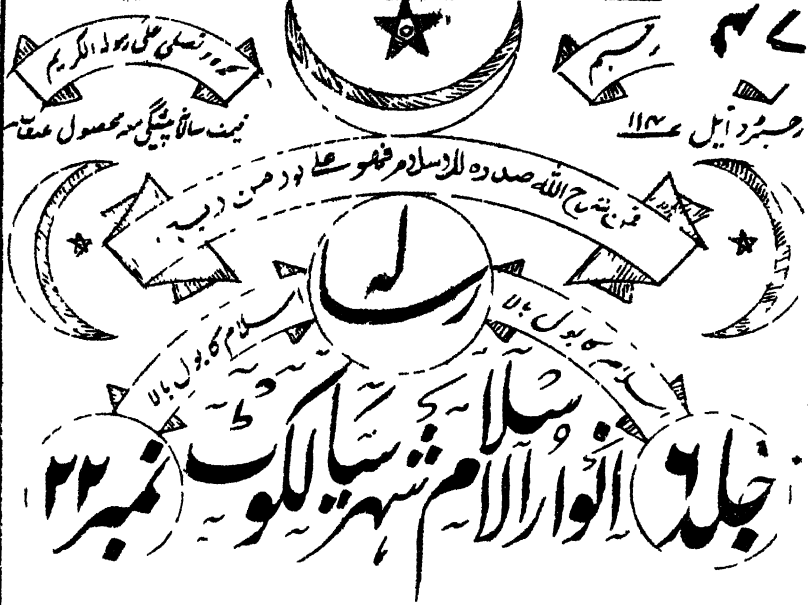 نحمدہ و نصلی علی رسولہ الکریم
رجسٹرڈ ایل ۱۱۴۷
قیمت سالانہ پیشگی معہ محصول
فمن شرح اللہ صدرہ للاسلام فھو علی نور من ربہ
رسالہ
اسلام کا بول بالا
اسلام کا بول بالا
جلد ۶
انوار الاسلام شہر سیالکوٹ
نمبر ۲۲